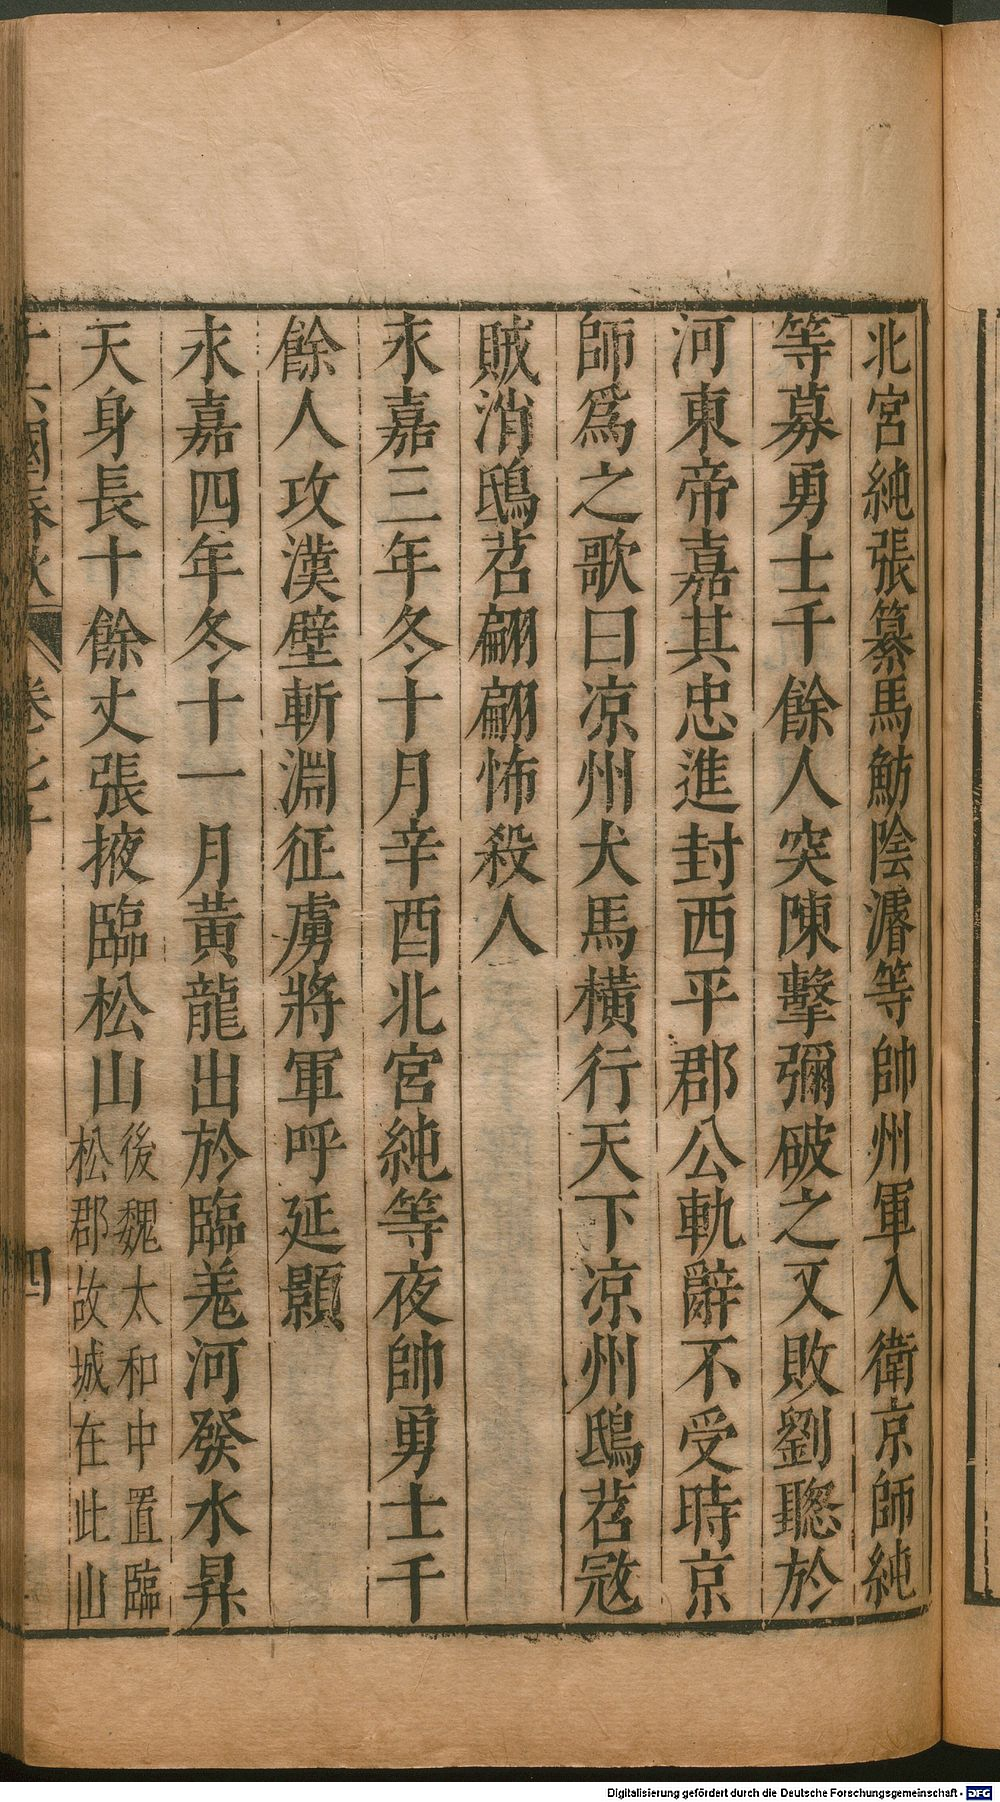 北宮純張纂馬魴陰濬等帥州軍入衛京師純
等募勇士千餘人突陳擊彌破之又敗劉聰於
河東帝嘉其忠進封西平郡公軌辭不受時京
師爲之歌曰凉州犬馬橫行天下凉州鴟苕㓂
賊消鴟苕翩翩怖殺人
永嘉三年冬十月辛酉北宮純等夜帥勇士千
餘人攻漢壁斬淵征虜將軍呼延顥
永嘉四年冬十一月黃龍出於臨羌河發水昇
天身長十餘丈張掖臨松山
後魏太和中置臨
松郡故城在此山
十六國春秋
卷七十
四
Digitalisierung gefördert durch die Deutsche Forschungsgemeinschaft - DFG